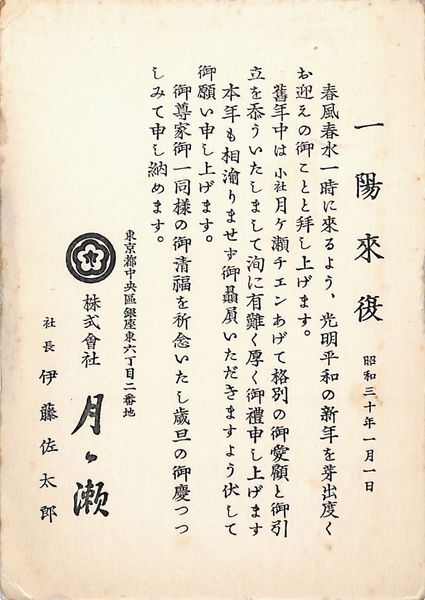 一陽來復
昭和三十年一月一日
春風春水一時に來るよう、光明平和の新年を芽出度く
お迎えの御ことと拜し上げます。
舊年中は小社月ケ瀬チエンあげて格別の御愛顧と御引
立を忝ういたしまして洵に有難く厚く御禮申し上げます
本年も相渝りませず御贔屓いただきますよう伏して
御願い申し上げます。
御尊家御一同様の御清福を祈念いたし歲旦の御慶つつ
しみて申し納めます。
東京都中央區銀座東六丁目二番地
株式會社 月ヶ瀬
社長 伊藤佐太郎